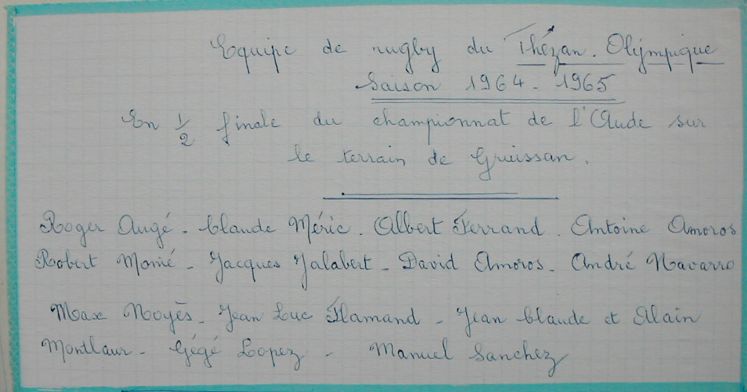 Equipe de rugby du Thézan. Olympique
Saison 1964-1965
En 1/2 finale du championnat de l'Aude sur
le terrain de Gruissan.
Roger Augé - Claude Méric. Albert Ferrand. Antoine Amoros
Robert Monié - Jacques Jalabert - David Amoros - André Navarro
Max Noyès - Jean Luc Flamand - Jean Claude et Alain
Montlaur - Gégé Lopez - Manuel Sanchez